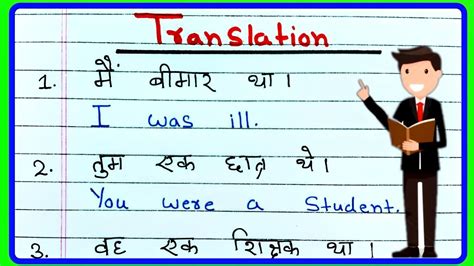 Translation
1. मैं बीमार था।
I was ill.
2. तुम एक छात्र थे।
You were a Student.
3. वह एक शिक्षक था।